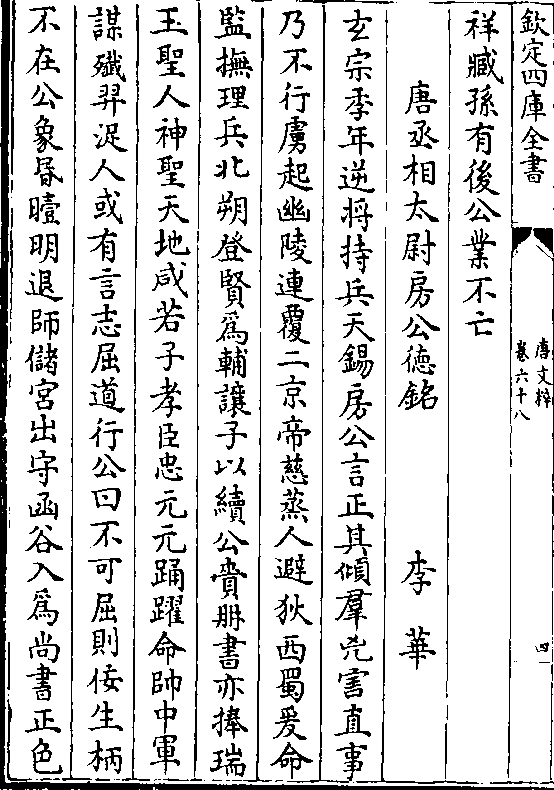 欽定四庫全書
唐文粹
卷六十八
四
祥臧孫有後公業不亡
唐丞相太尉房公德銘 李華
玄宗季年逆将持兵天錫房公言正其傾羣兇害直事
乃不行虜起幽陵連覆二京帝慈蒸人避狄西蜀爰命
監撫理兵北朔登賢爲輔讓子以續公賫冊書亦捧瑞
玉聖人神聖天地咸若子孝臣忠元元踊躍命帥中軍
謀殱羿浞人或有言志屈道行公曰不可屈則佞生柄
不在公象昏曀明退師儲宮出守函谷入爲尚書正色